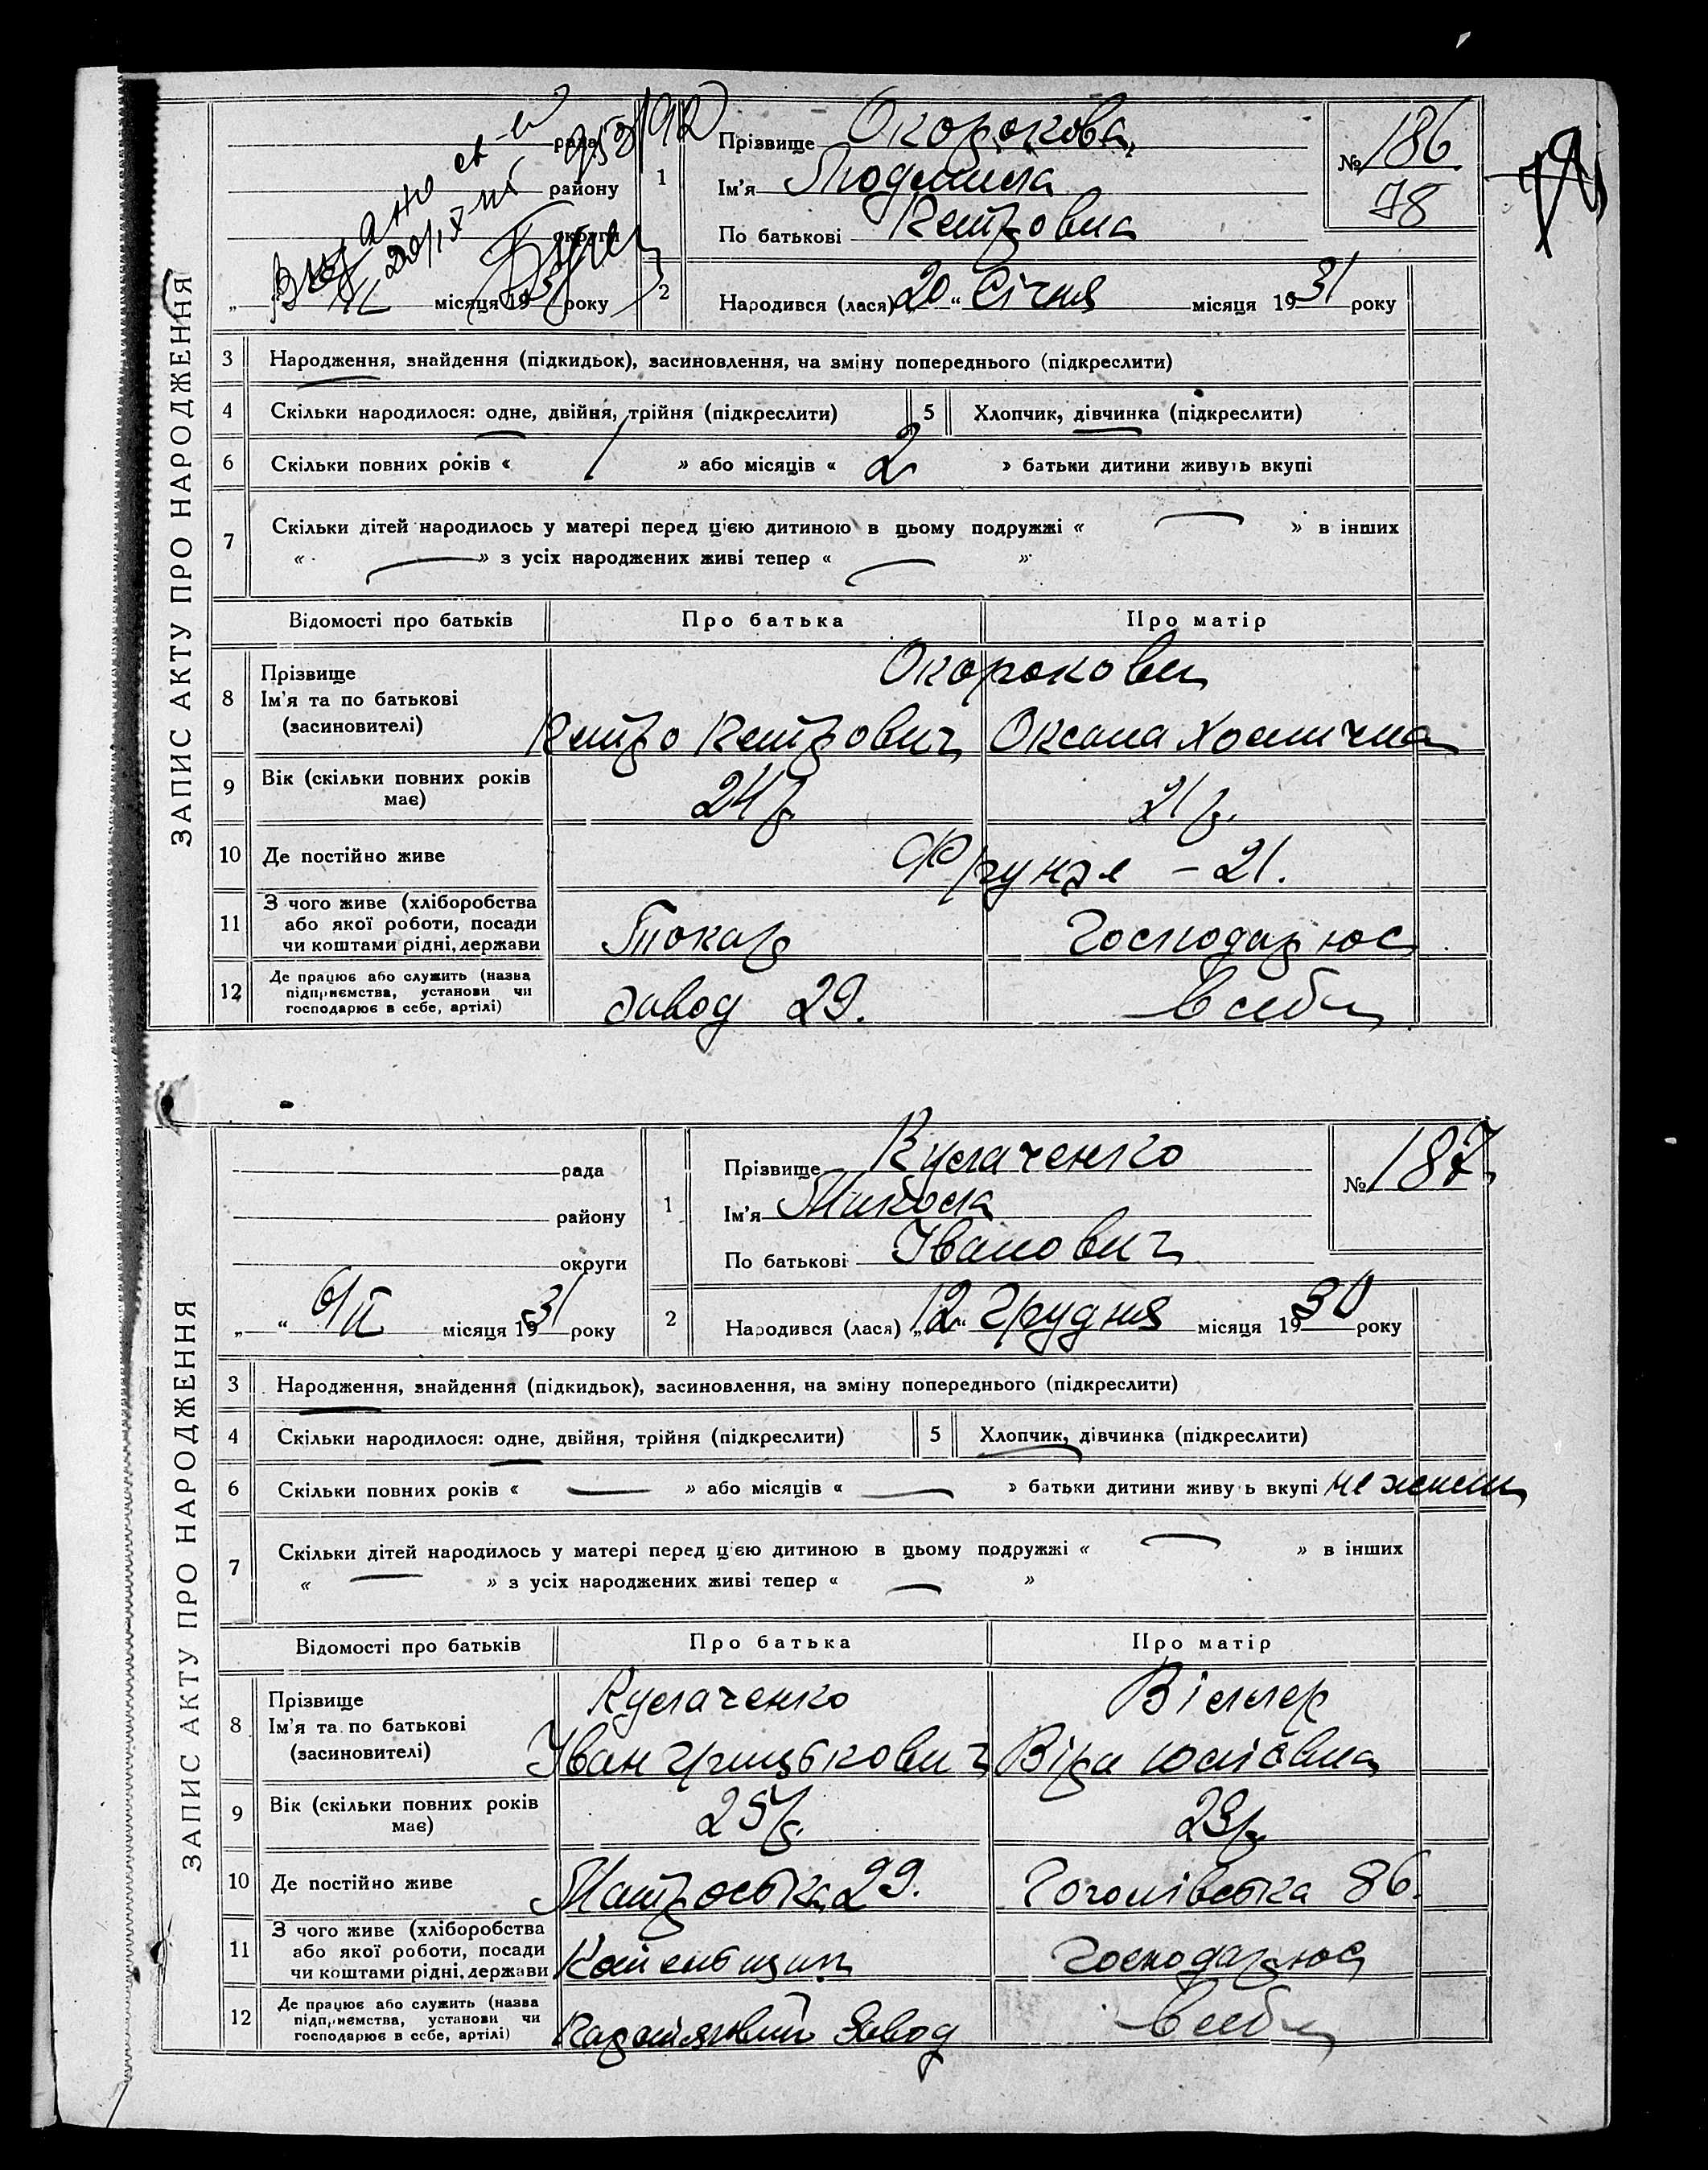 ЗАПИС АКТУ ПРО НАРОДЖЕННЯ
рада
району
округи
„ “ місяця 1931 року
1 Прізвище Окорокова
Ім'я Людмила
По батькові Петровна
№ 186
78
2 Народився (лася) „20“ Січня місяця 1931 року
3 Народження, знайдення (підкидьок), засиновлення, на зміну попереднього (підкреслити)
4 Скільки народилося: одне, двійня, трійня (підкреслити) 5 Хлопчик, дівчинка (підкреслити)
6 Скільки повних років « / » або місяців « 2 » батьки дитини живуть вкупі
7 Скільки дітей народилось у матері перед цією дитиною в цьому подружжі « — » в інших
« — » з усіх народжених живі тепер « — »
Відомості про батьків Про батька Про матір
8 Прізвище
Ім'я та по батькові
(засиновителі)
Окорокови
Петро Петрович Оксана
9 Вік (скільки повних років
має)
24 р. 21 р.
10 Де постійно живе Фрунзе – 21.
11 З чого живе (хліборобства
або якої роботи, посади
чи коштами рідні, держави
Токар Господарює
12 Де працює або служить (назва
підприємства, установи чи
господарює в себе, артілі)
завод 29. в себе
ЗАПИС АКТУ ПРО НАРОДЖЕННЯ
рада
району
округи
„ “ 6/II місяця 1931 року
1 Прізвище Кулаченко
Ім'я Микола
По батькові Іванович
№ 187
2 Народився (лася) „12“ Грудня місяця 1930 року
3 Народження, знайдення (підкидьок), засиновлення, на зміну попереднього (підкреслити)
4 Скільки народилося: одне, двійня, трійня (підкреслити) 5 Хлопчик, дівчинка (підкреслити)
6 Скільки повних років « — » або місяців « — » батьки дитини живуть вкупі не жили
7 Скільки дітей народилось у матері перед цією дитиною в цьому подружжі « — » в інших
« — » з усіх народжених живі тепер « — »
Відомості про батьків Про батька Про матір
8 Прізвище
Ім'я та по батькові
(засиновителі)
Кулаченко Віллер
Іван Грицькович Віра Юліовна
9 Вік (скільки повних років
має)
25 р. 23 р.
10 Де постійно живе Матроська 29. Гоголівська 86.
11 З чого живе (хліборобства
або якої роботи, посади
чи коштами рідні, держави
Котельщик Господарює
12 Де працює або служить (назва
підприємства, установи чи
господарює в себе, артілі)
завод в себе